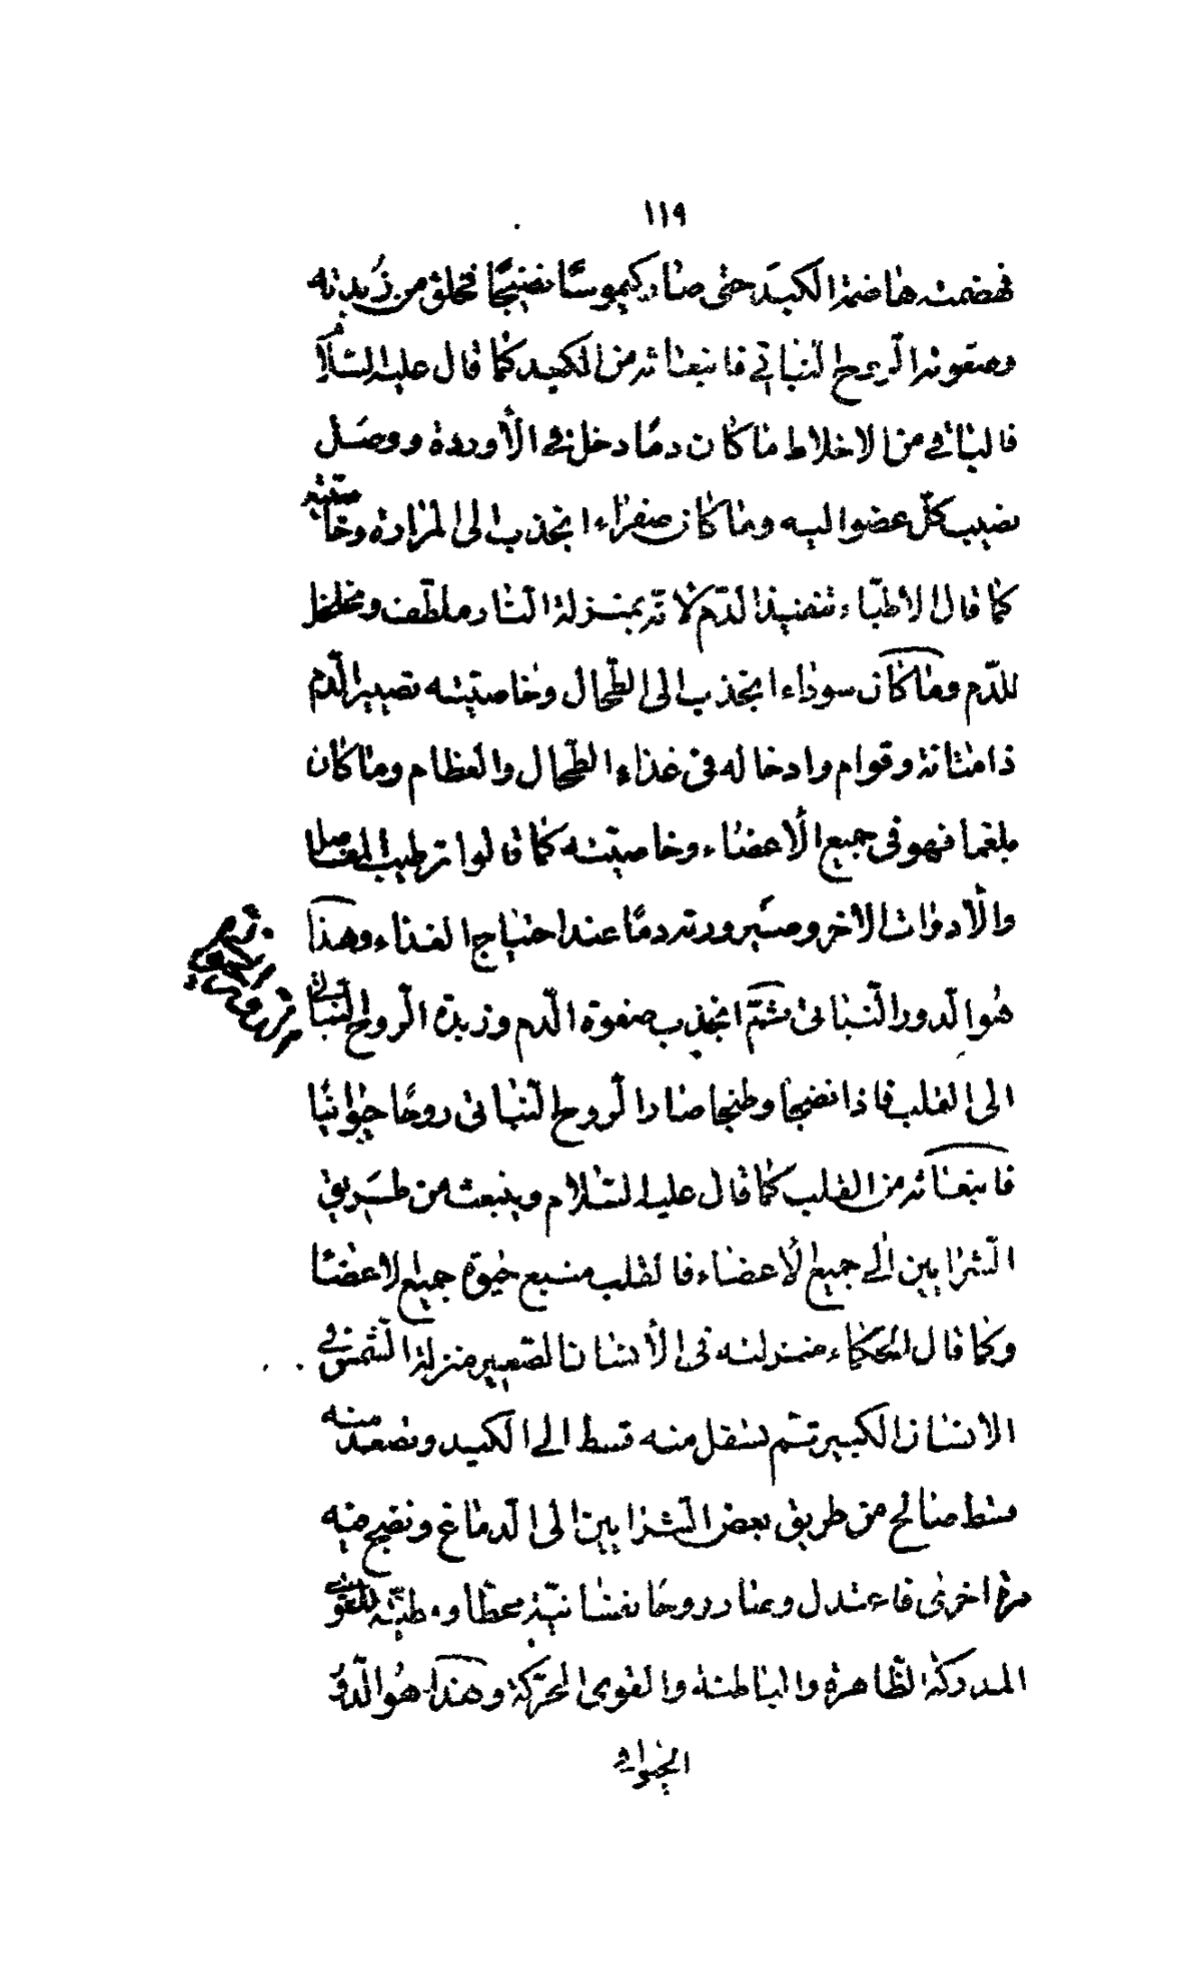 ١١٩
فهضمته هاضمة الكبد حتى صار كيموسًا نضيجًا فخلق من زبدته
وصفوته الروح النباتي فانبعاثه من الكبد كما قال عليه السلام
فالباقي من الاخلاط ما كان دمًا دخل في الأوردة ووصل
نصيب كلّ عضو اليه وما كان صفراء انجذب الى المرارة وخاصيته
كما قال الاطبّاء تنفيذ الدّم لانّه بمنزلة النار ملطّف ومخلخل
للدّم وما كان سوداء انجذب الى الطّحال وخاصيته تصيير الدّم
ذا متانة وقوام وادخاله في غذاء الطّحال والعظام وما كان
بلغما فهو في جميع الأعضاء وخاصيته كما قالوا ترطيب المفاصل
والأدوات الأخر وصيرورته دمًا عند احتياج الغذاء وهذا
هو الدور النّباتى ثمّ انجذب صفوة الدم وزبدة الروح النباتى
الى القلب فاذا نضجا وطبخا صار الروح النّباتى روحًا حيوانيًا
فانبعاثه من القلب كما قال عليه السّلام وينبعث من طريق
الشرايين الى جميع الأعضاء فالقلب منبع حيوة جميع الاعضا
وكما قال الحكماء منزلته فى الأنسان الصّغير منزلة الشّمس فى
الانسان الكبير ثم ينتقل منه قسط الى الكبد وتصعد منه
قسط صالح من طريق بعض الشرايين الى الدماغ ونضج فيه
مرة اخرى فاعتدل وصار روحًا نفسانيّة محطّا ومطيّة للقوى
المدركة الظّاهرة والباطنة والقوى المحرّكة وهذا هو الدّور
الحيوانى